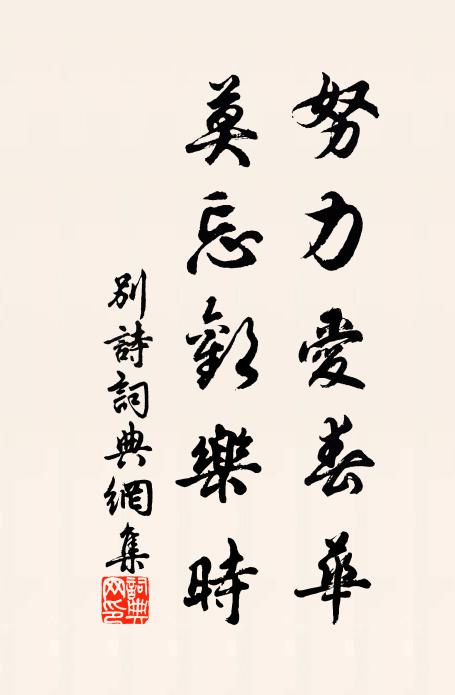 努力愛春華
莫忘歡樂時
別詩詞典網集
詞典網印